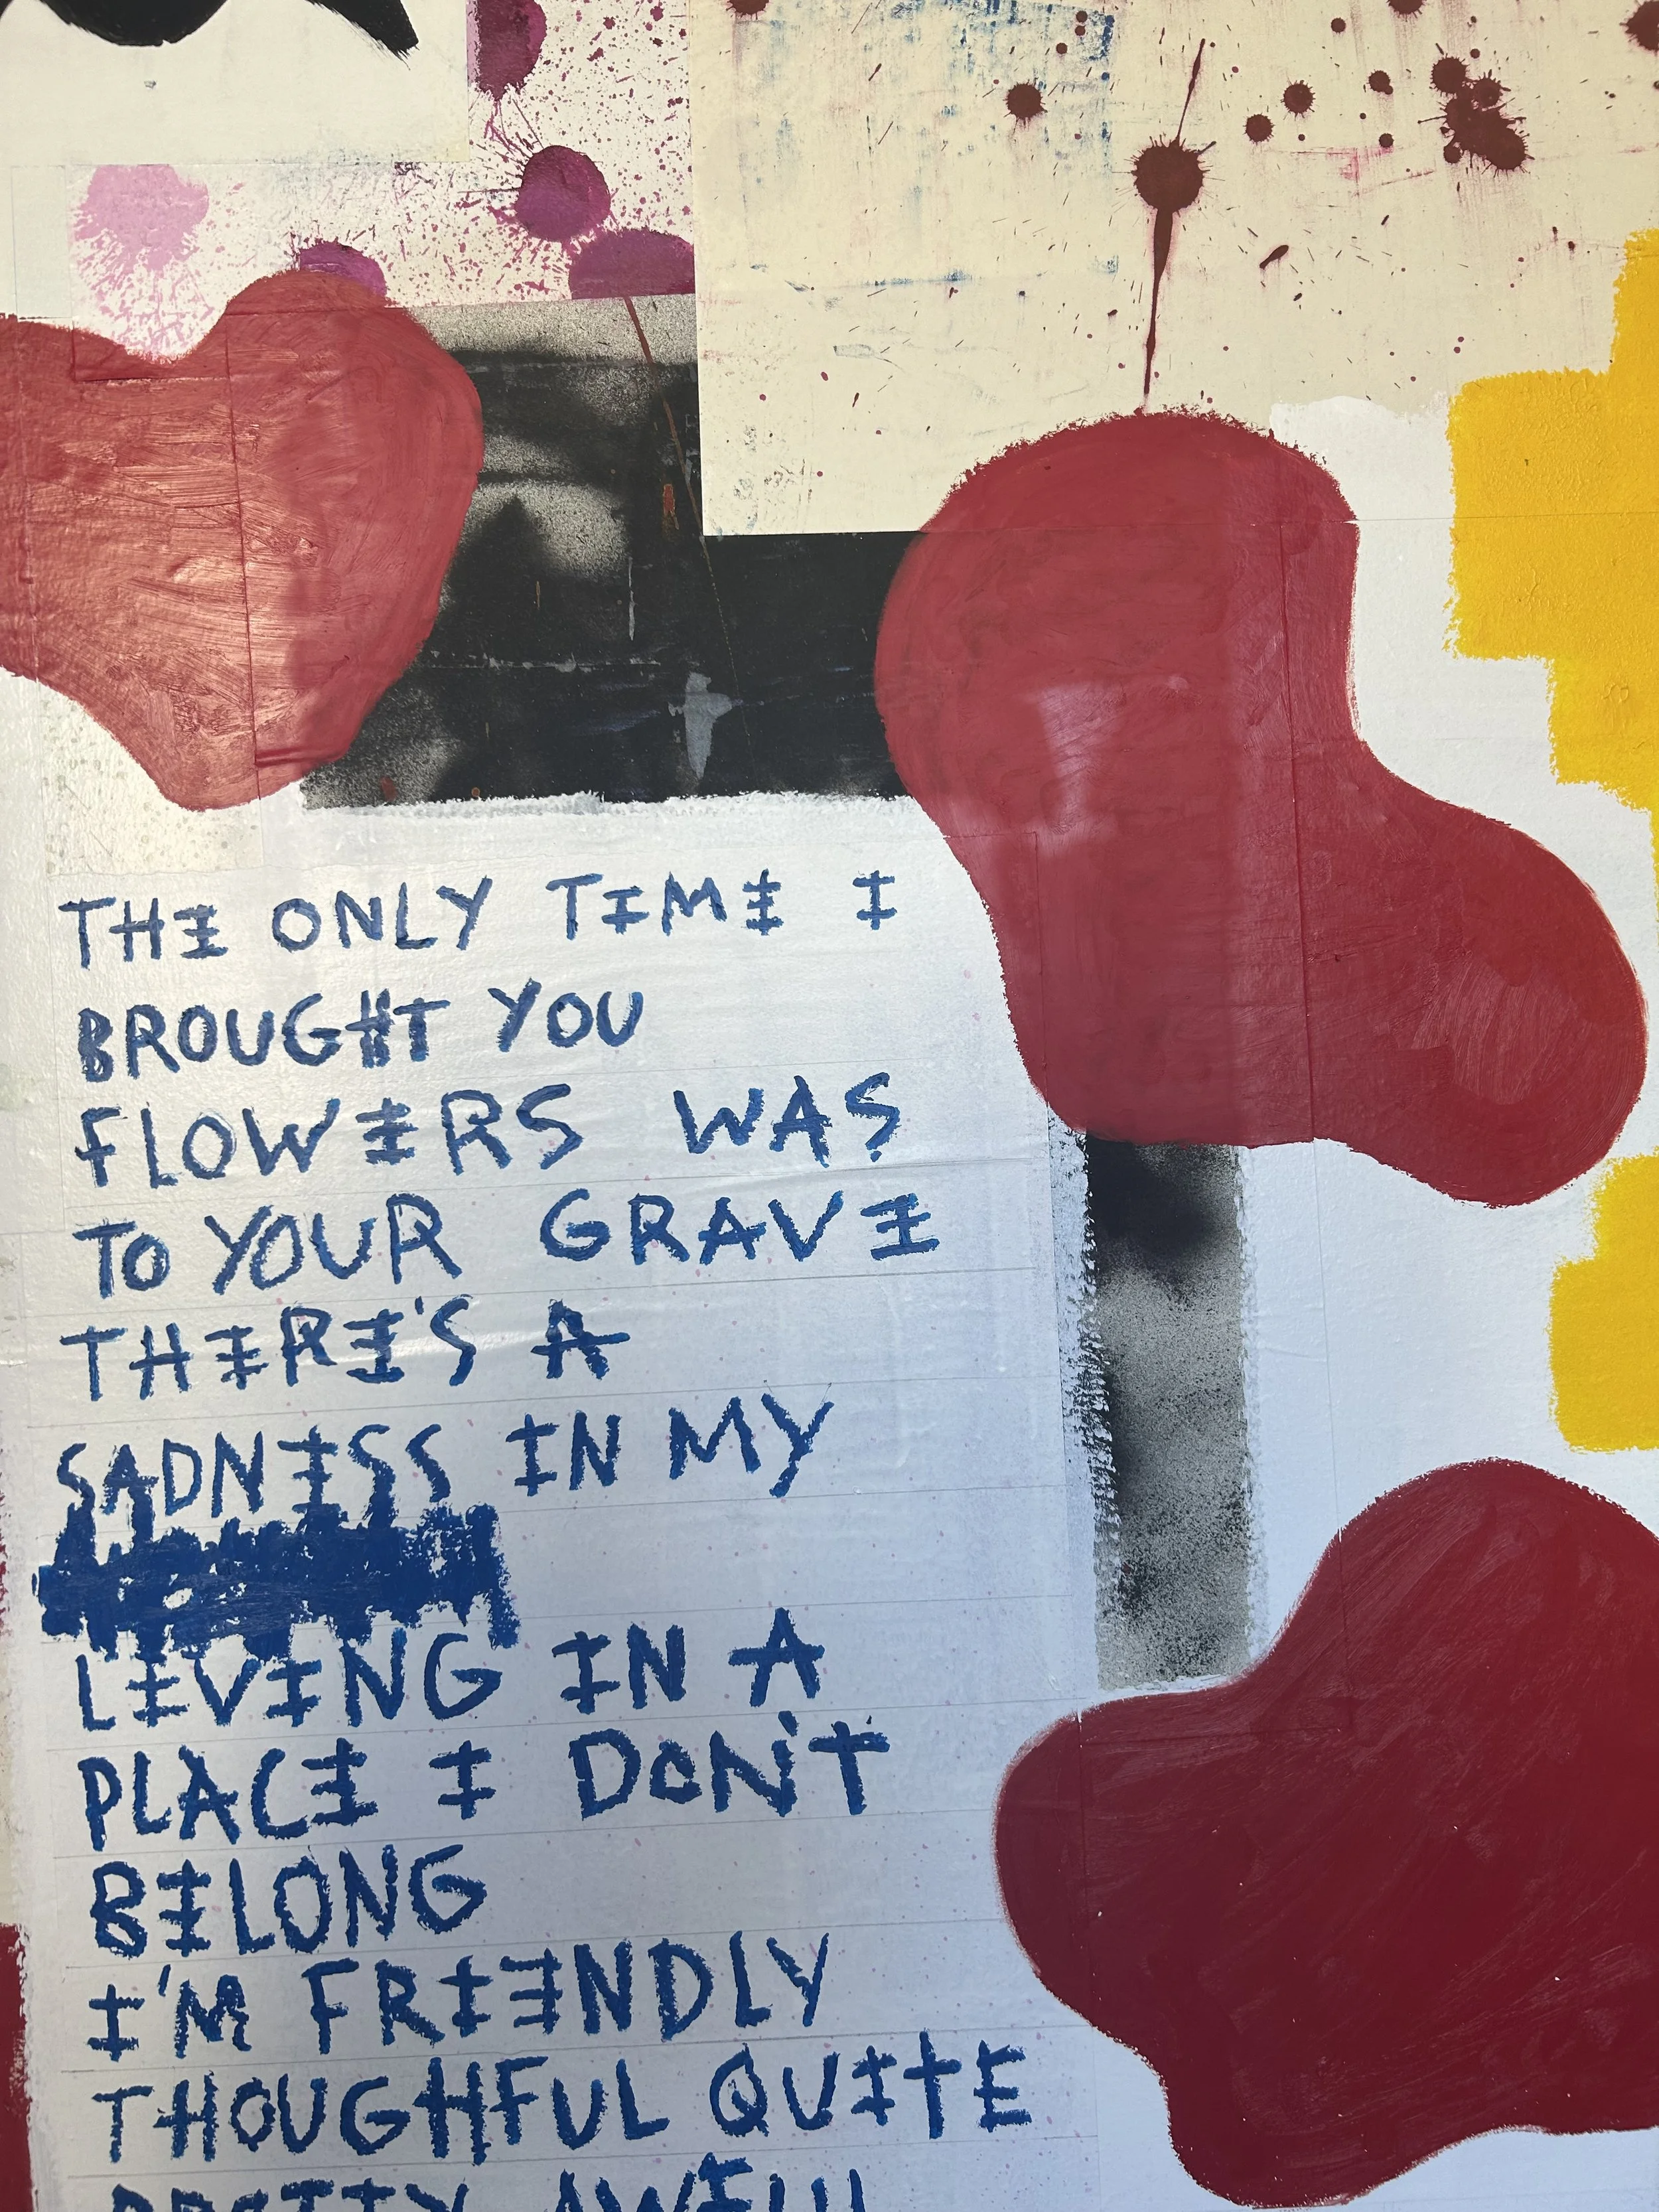 THE ONLY TIME I
BROUGHT YOU
FLOWERS WAS
TO YOUR GRAVE
THERE'S A
SADNESS IN MY
LIVING IN A
PLACE I DON'T
BELONG
I'M FRIENDLY
THOUGHFUL QUITE
PRETTY AWFUL